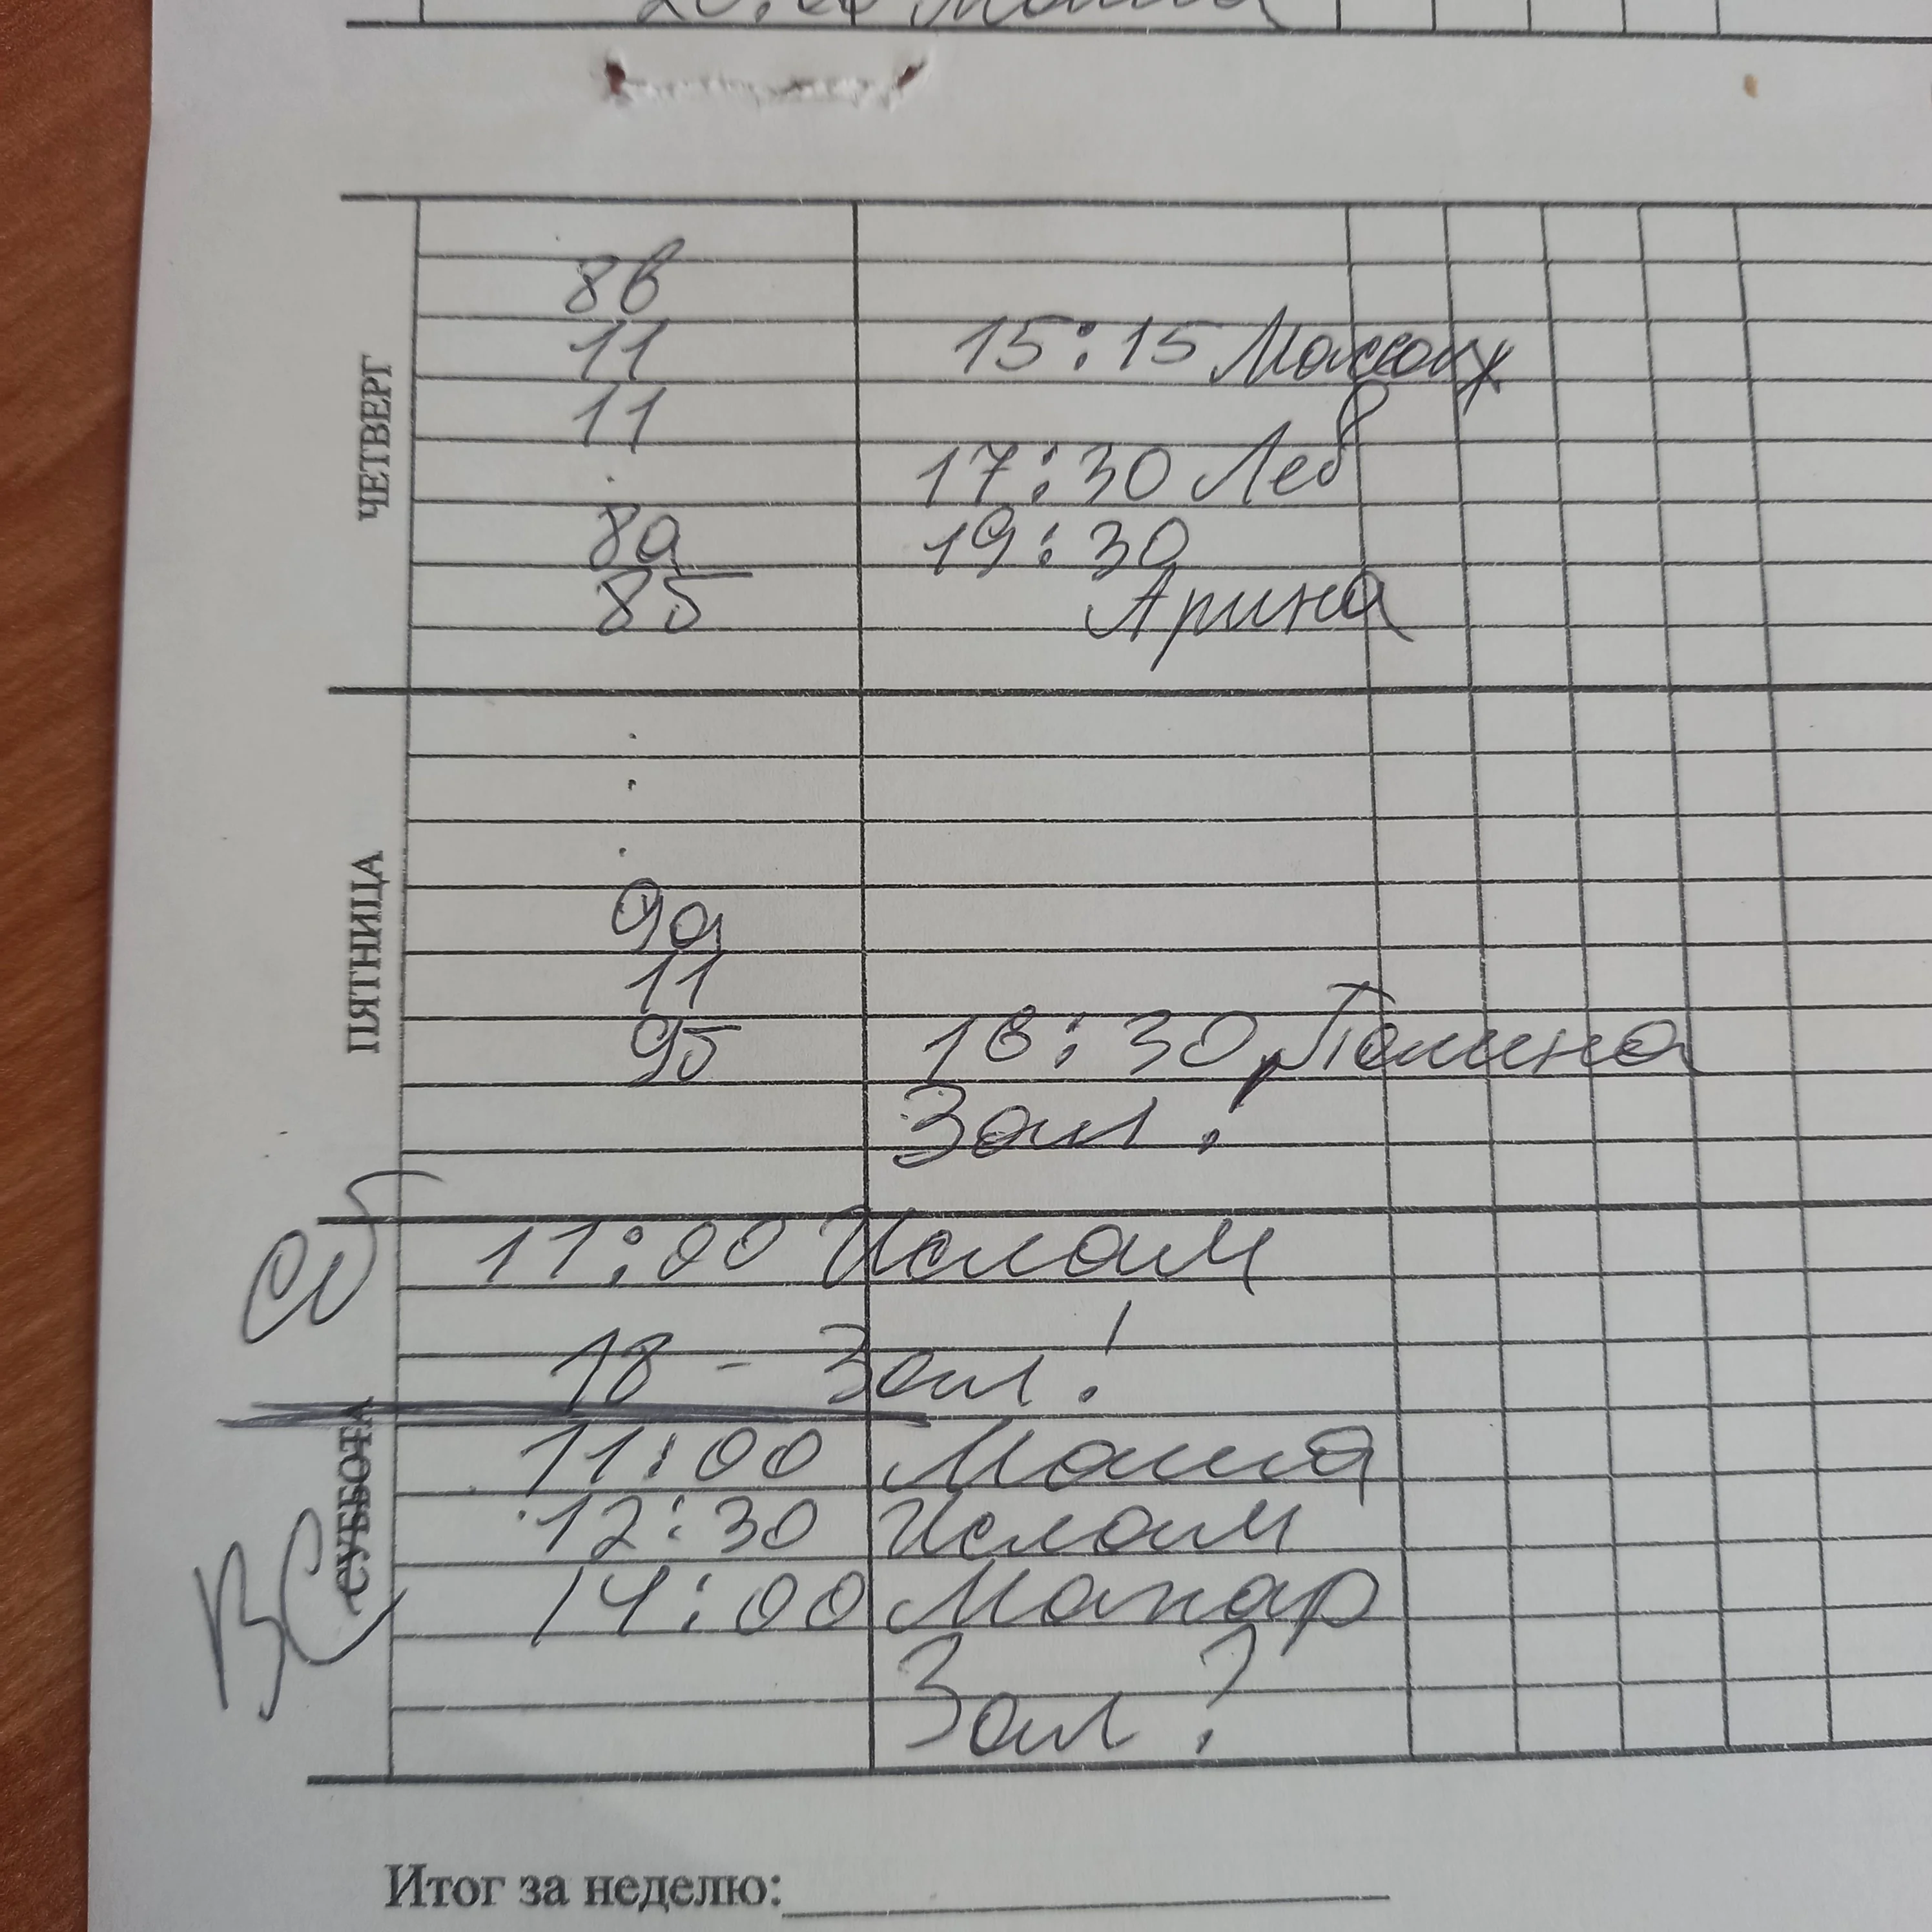 ЧЕТВЕРГ
8в
11 15:15 Массаж
11
17:30 Лев
8а 19:30
8б Арина
ПЯТНИЦА
9а
11
9б 18:30 Полина
Зал!
Сб 11:00 Ислам
18 - Зал!
СУББОТА
ВС
11:00 Маша
12:30 Ислам
14:00 Макар
Зал?
Итог за неделю: